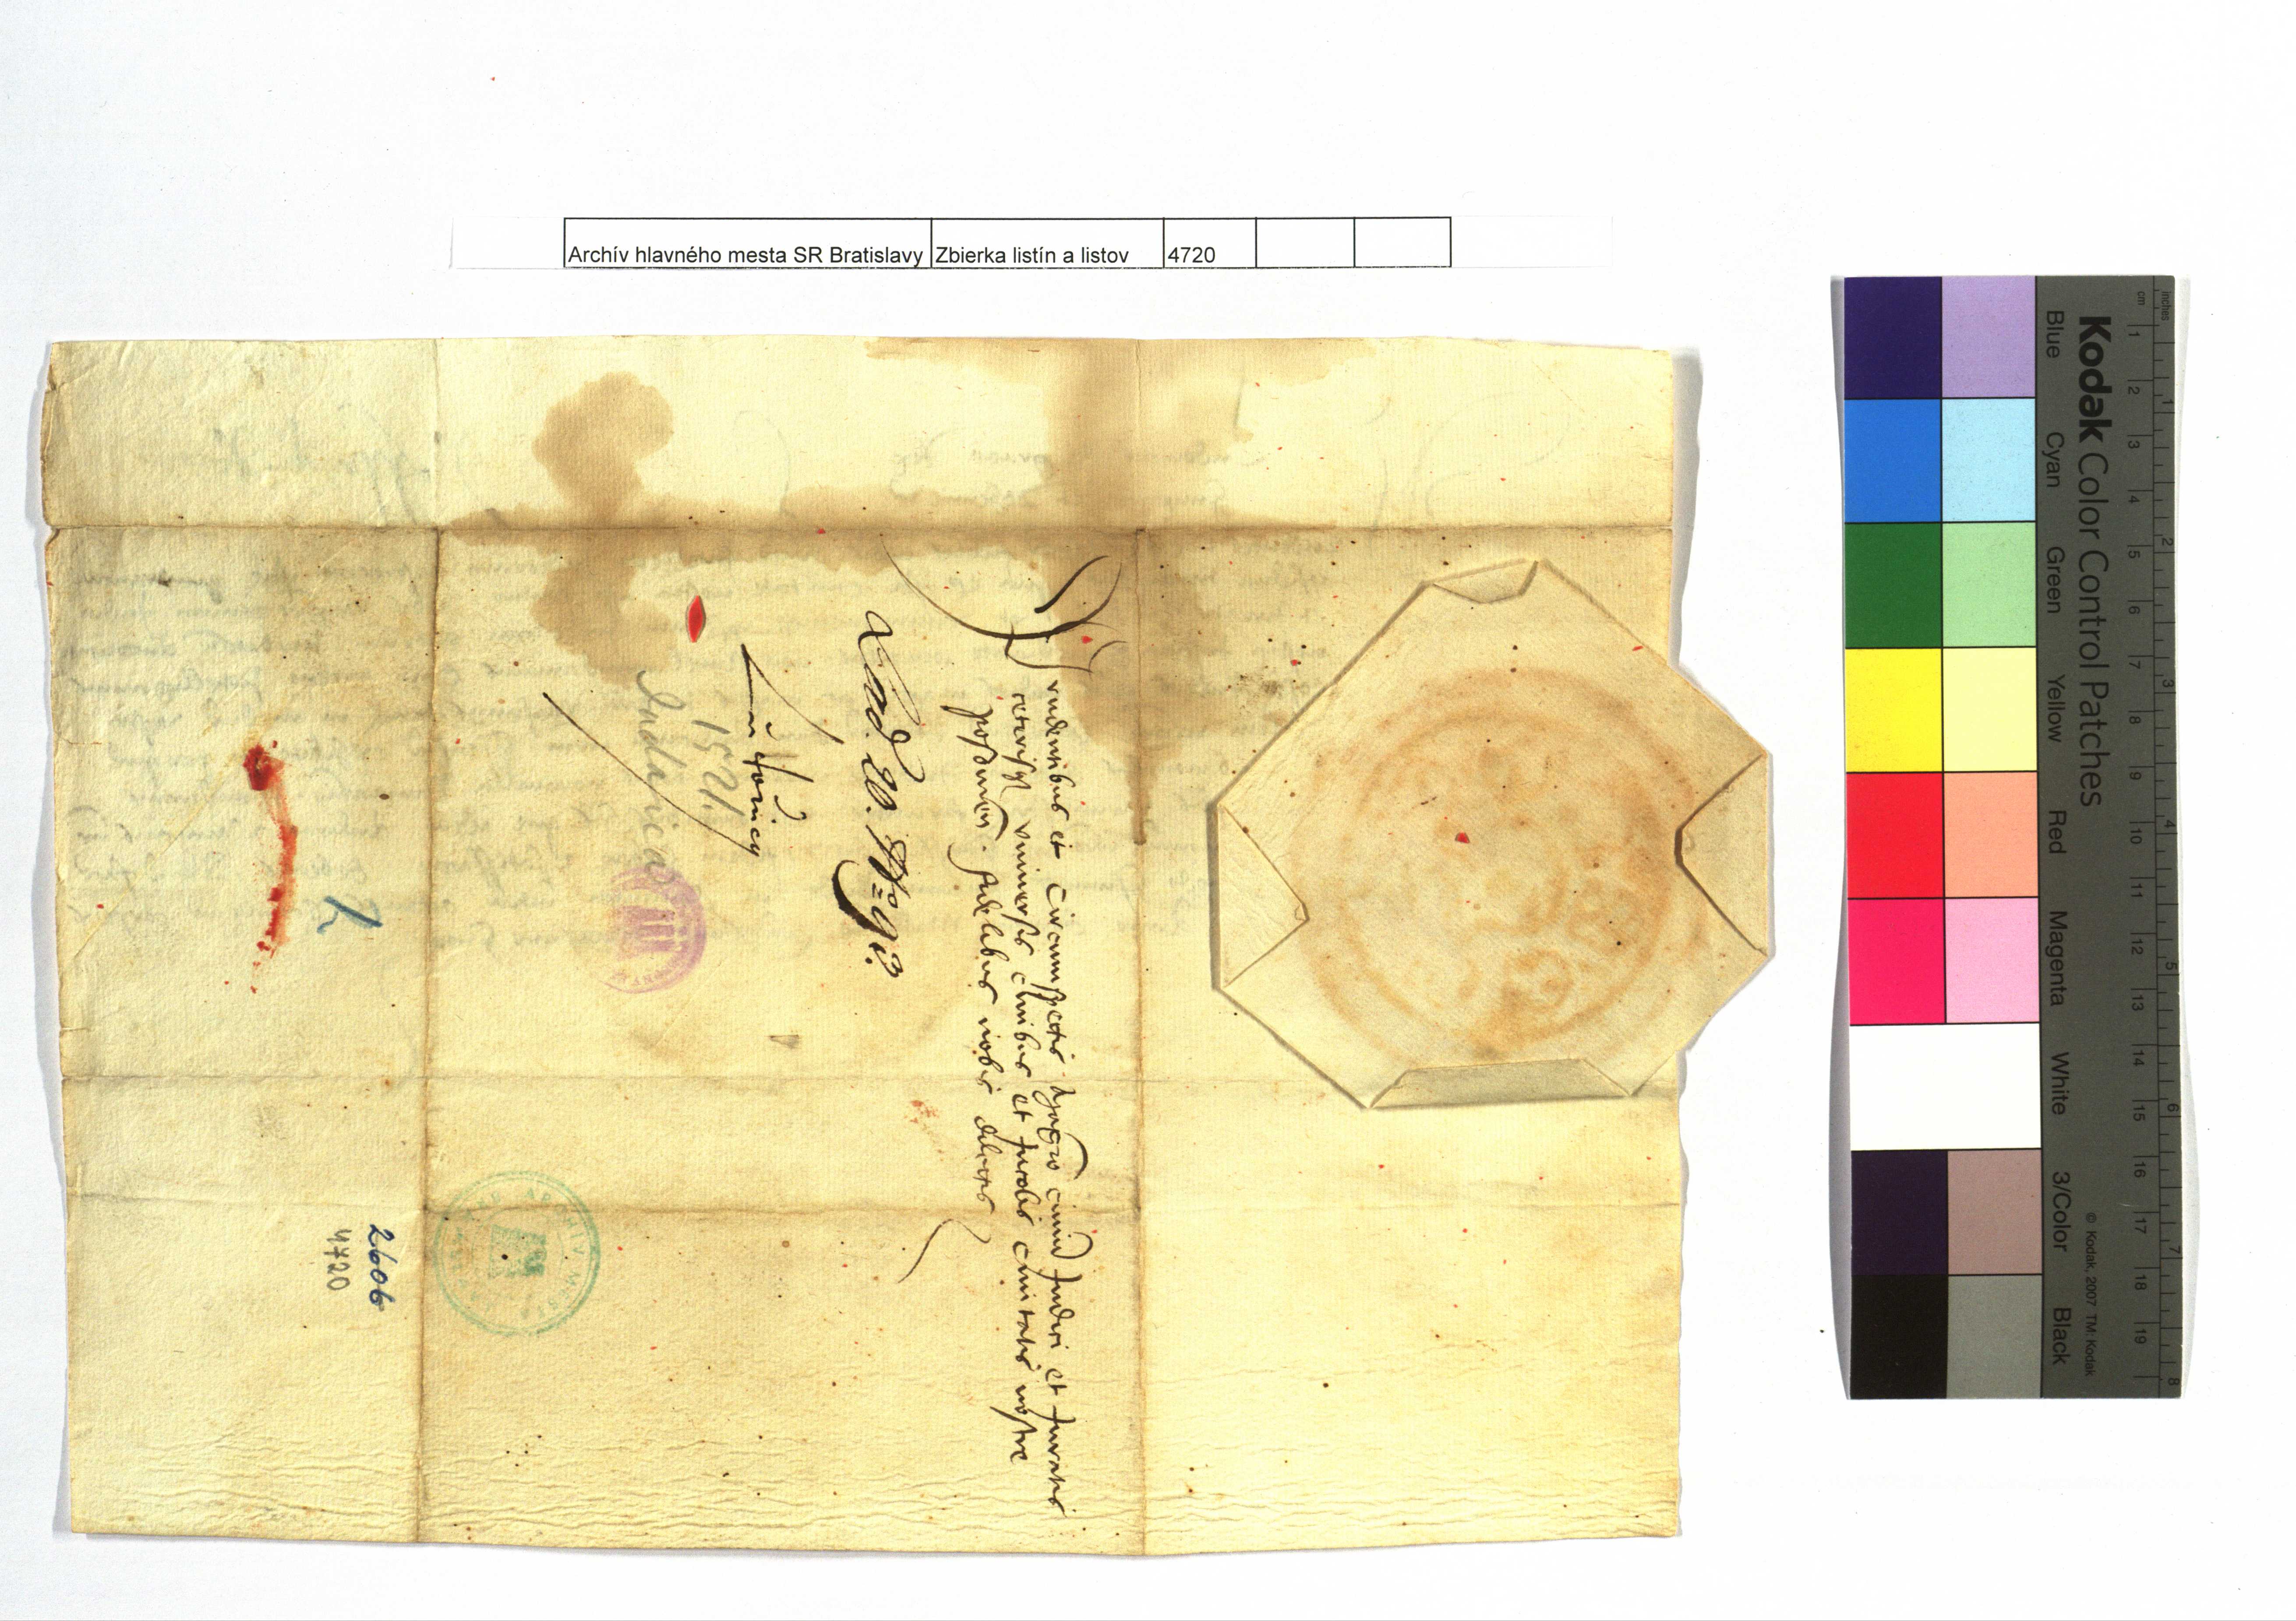 Archív hlavného mesta SR Bratislavy Zbierka listín a listov 4720
Prudentibus et circumspectis Magistro civium Judici et Juratis
ceterisque universis civibus et Incolis civitatis nostre
posonien. fidelibus nobis dilectis
Lad. 20. N=o 96.
1521.
2606
4720
ARCHIV MESTA
Kodak Color Control Patches
Blue Cyan Green Yellow Red Magenta White 3/Color Black
© Kodak, 2007 TM: Kodak
inches 1 2 3 4 5 6 7 8
cm 1 2 3 4 5 6 7 8 9 10 11 12 13 14 15 16 17 18 19